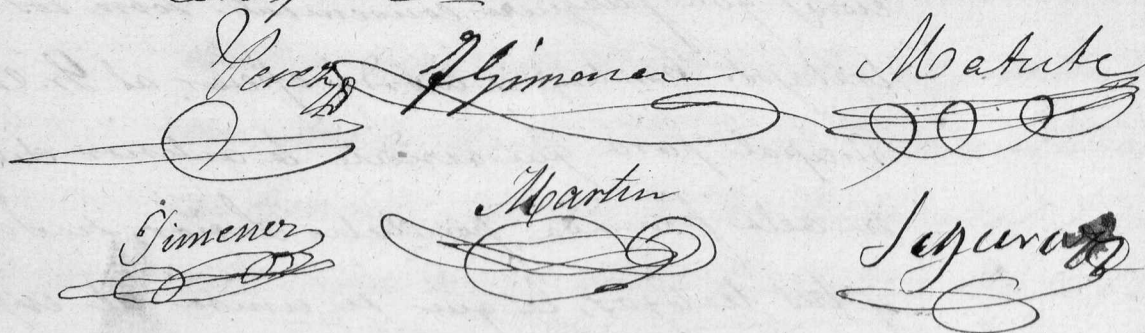 Perez F Gimenez Matute
Jimenez Martin Segura